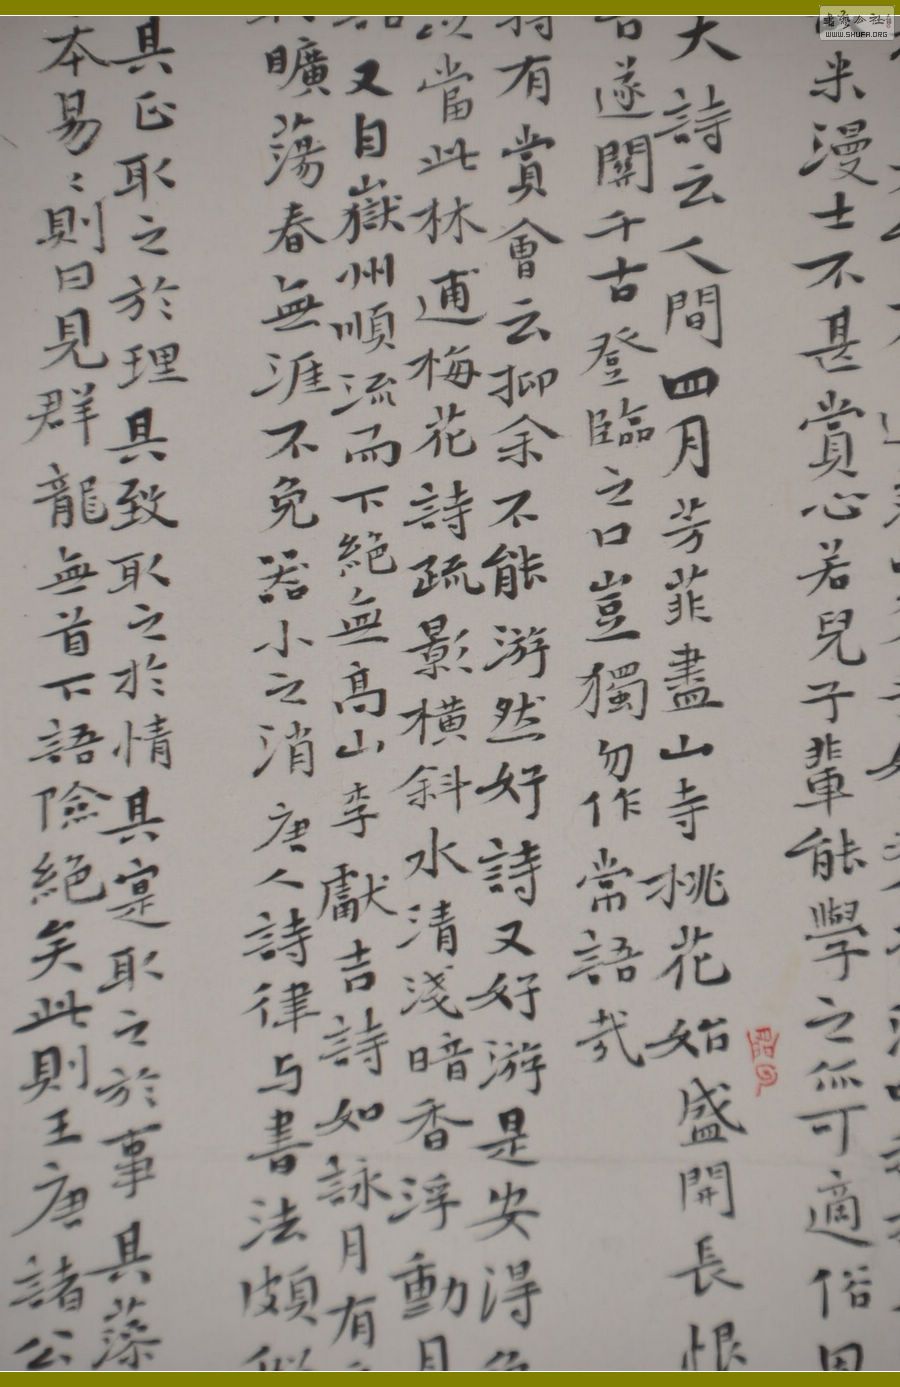 米漫士不甚賞心若兒子輩能學之亦可適俗
大詩云人間四月芳菲盡山寺桃花始盛開長恨
古遂關千古登臨之口豈獨勿作常語哉
有賞會云抑余不能游然好詩又好游是安得
以當此林逋梅花詩疏影橫斜水清淺暗香浮動月
又自嶽州順流而下絕無高山李獻吉詩如詠月有
曠蕩春無涯不免器小之消唐人詩律与書法頗似
具正取之於理具致取之於情具寔取之於事具藻
本易〻則曰見群龍無首下語險絕矣此則王唐諸公
書法公社
WWW.SHUFA.ORG